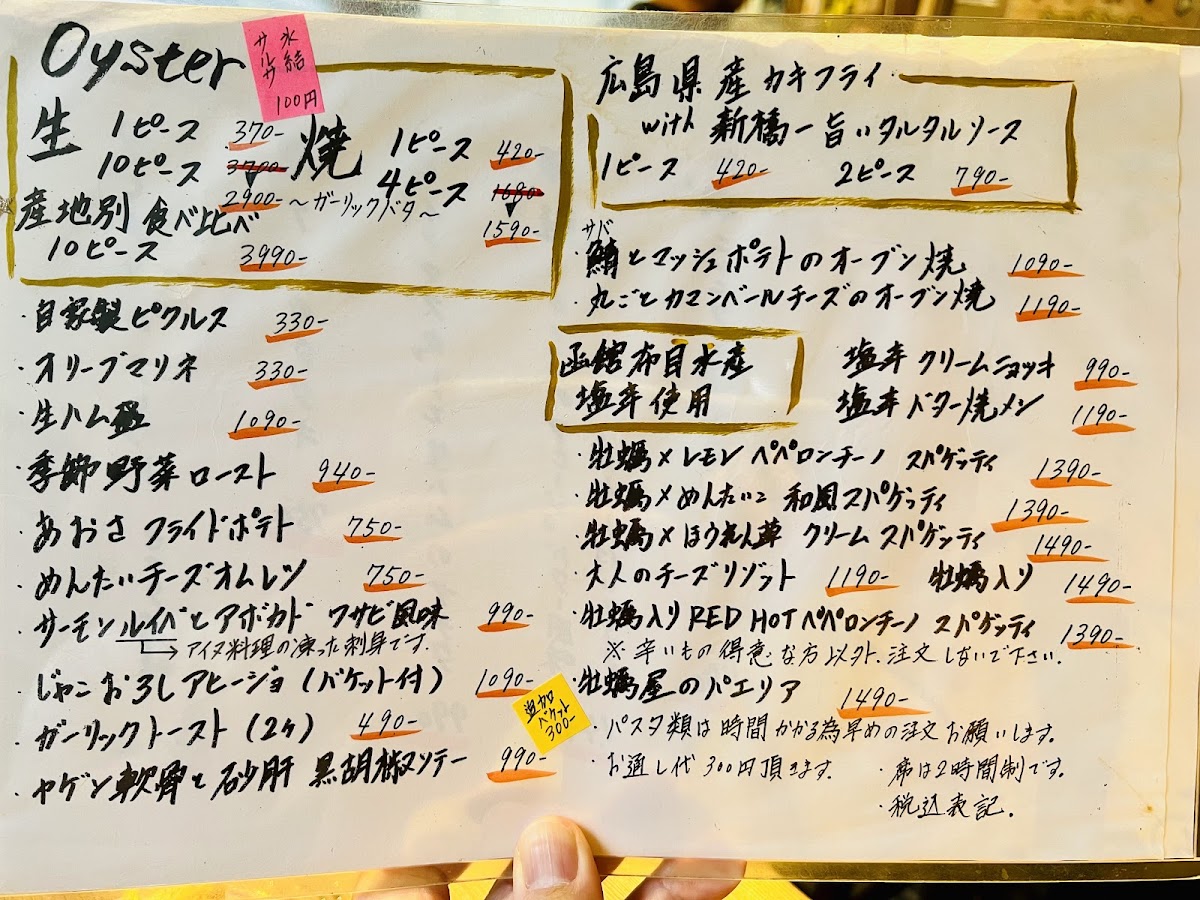 Oyster
氷結
サルサ
100円
生 1ピース 370-
10ピース 3700- 2900-
焼 1ピース 420-
4ピース 1680- 1590-
～ガーリックバタ～
産地別 食べ比べ
10ピース 3990-
・自家製ピクルス 330-
・オリーブマリネ 330-
・生ハム盛 1090-
・季節野菜ロースト 940-
・あおさフライドポテト 750-
・めんたいチーズオムレツ 750-
・サーモンルイベとアボカド ワサビ風味 990-
→アイヌ料理の凍った刺身です.
・じゃこおろしアヒージョ(バケット付) 1090-
・ガーリックトースト(2ヶ) 490-
・ヤゲン軟骨と砂肝 黒胡椒ソテー 990-
追加
バケット
300-
広島県産カキフライ
with 新橋一旨いタルタルソース
1ピース 420- 2ピース 790-
サバ
・鯖とマッシュポテトのオーブン焼 1090-
・丸ごとカマンベールチーズのオーブン焼 1190-
函館布目水産
塩辛使用
塩辛クリームニョッキ 990-
塩辛バター焼メン 1190-
・牡蠣×レモンペペロンチーノ スパゲッティ 1390-
・牡蠣×めんたいこ 和風スパゲッティ 1390-
・牡蠣×ほうれん草 クリームスパゲッティ 1490-
・大人のチーズリゾット 1190- 牡蠣入り 1490-
・牡蠣入りRED HOTペペロンチーノ スパゲッティ 1390-
※辛いもの得意な方以外、注文しないで下さい.
・牡蠣屋のパエリア 1490-
・パスタ類は時間かかる為早めの注文お願いします.
・お通し代300円頂きます. ・席は2時間制です.
・税込表記.